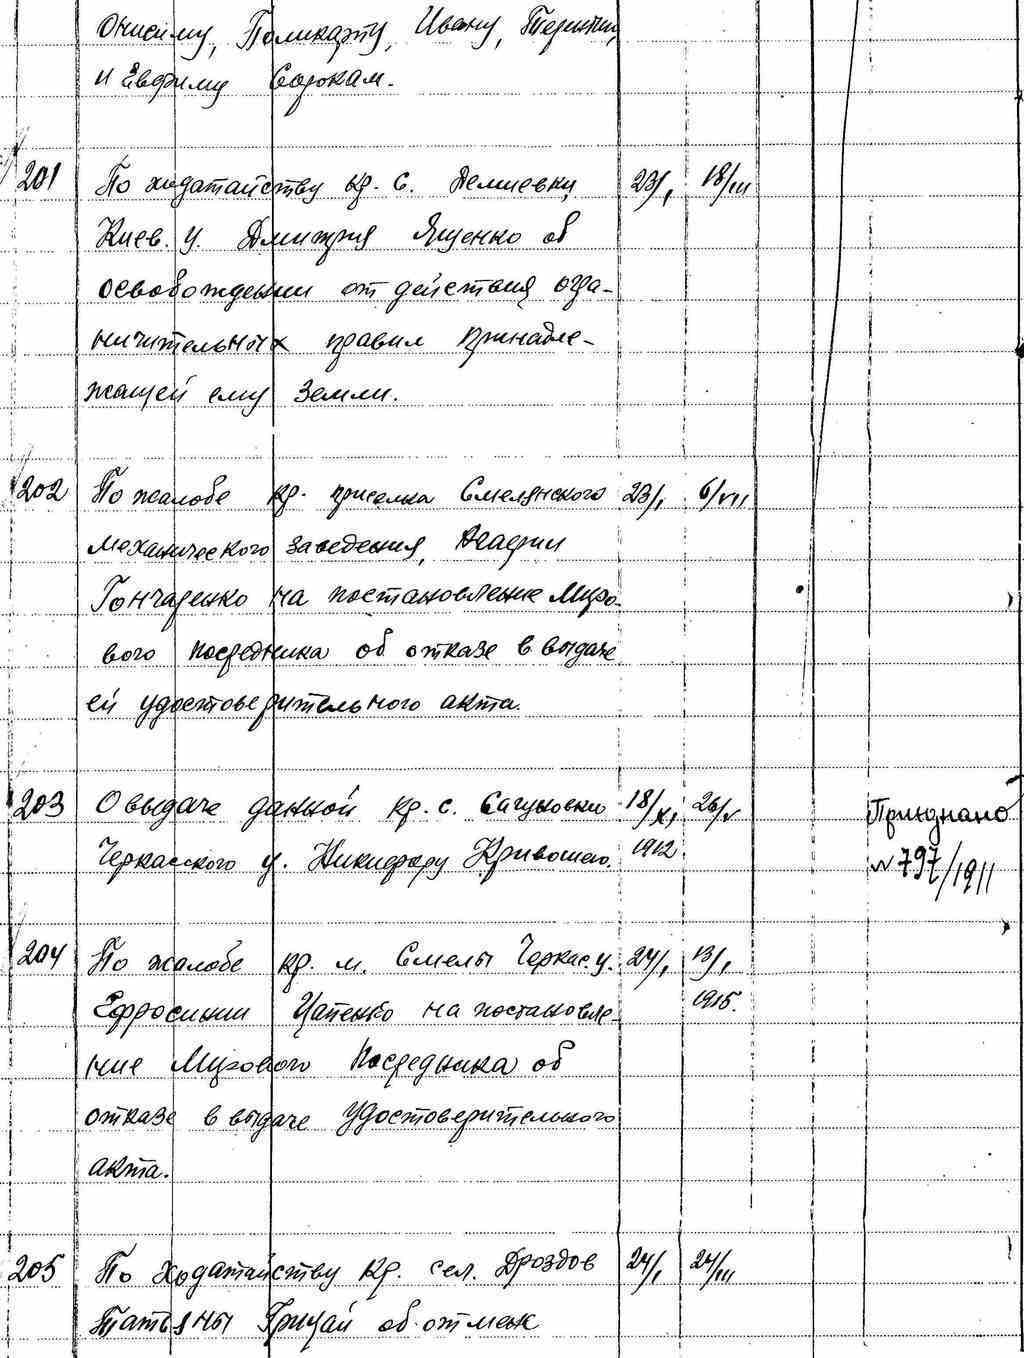 Онисиму, Поликарпу, Ивану, Терентию
и Евфиму Сорокам.
201 По ходатайству кр. с. Демиевки 23/I 18/III
Киев. у. Дмитрия Ященко об
освобождении от действия огра-
ничительных правил принадле-
жащей ему земли.
202 По жалобе кр. приселка Смелянского 23/I 6/VII
механического заведения, Агафии
Гончаренко на постановление Миро-
вого посредника об отказе в выдаче
ей удостоверительного акта.
203 О выдаче данной кр. с. Сагуновки 18/XI 26/V Приоднано
Черкасского у. Никифору Кривошею. 1912. N 797/1911
204 По жалобе кр. м. Смелы Черкас. у. 24/I 13/I
Ефросинии Цапенко на постановле- 1915.
ние Мирового Посредника об
отказе в выдаче удостоверительного
акта.
205 По ходатайству кр. сел. Дроздов 24/I 24/III
Татьяны Грицай об отмене